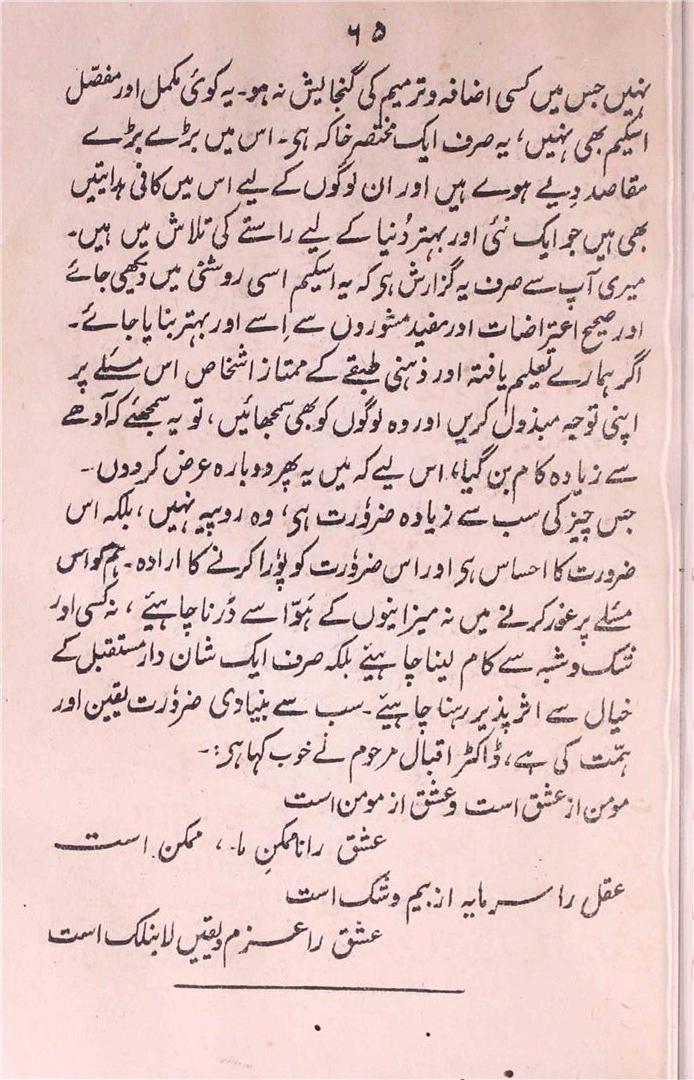 ۶۵
نہیں جس میں کسی اضافہ و ترمیم کی گنجایش نہ ہو۔ یہ کوئی مکمل اور مفصّل
اسکیم بھی نہیں، یہ صرف ایک مختصر خاکہ ہی۔ اس میں بڑے بڑے
مقاصد دیے ہوے ہیں اور ان لوگوں کے لیے اس میں کافی ہدایتیں
بھی ہیں جو ایک نئی اور بہتر دُنیا کے لیے راستے کی تلاش میں ہیں۔
میری آپ سے صرف یہ گزارش ہی کہ یہ اسکیم اسی روشنی میں دیکھی جائے
اور صحیح اعتراضات اور مفید مشوروں سے اِسے اور بہتر بنایا جائے۔
اگر ہمارے تعلیم یافتہ اور ذہنی طبقے کے ممتاز اشخاص اس مسئلے پر
اپنی توجہ مبذول کریں اور وہ لوگوں کو بھی سمجھائیں، تو یہ سمجھئے کہ آدھے
سے زیادہ کام بن گیا، اس لیے کہ میں یہ پھر دوبارہ عرض کر دوں۔
جس چیز کی سب سے زیادہ ضرورت ہی، وہ روپیہ نہیں، بلکہ اس
ضرورت کا احساس ہی اور اس ضرورت کو پورا کرنے کا ارادہ۔ ہم کو اس
مسئلے پر غور کرنے میں نہ میزانیوں کے ہَوّا سے ڈرنا چاہیئے، نہ کسی اور
شک و شبہ سے کام لینا چاہیئے بلکہ صرف ایک شان دار مستقبل کے
خیال سے اثر پذیر رہنا چاہیئے۔ سب سے بنیادی ضرورت یقین اور
ہمّت کی ہے، ڈاکٹر اقبال مرحوم نے خوب کہا ہی:۔
مومن از عشق است و عشق از مومن است
عشق را ناممکنِ ما، ممکن است
عقل را سرمایہ از بیم و شک است
عشق را عزم و یقیں لاینفک است